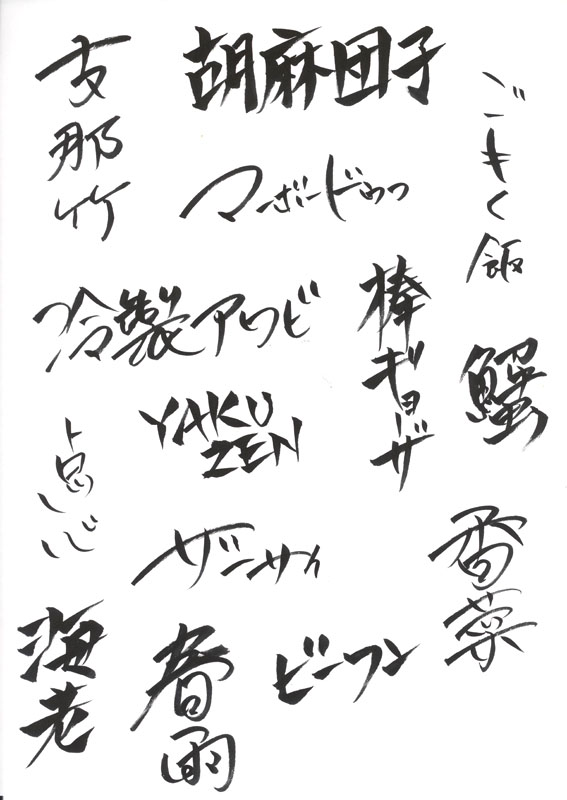 支那竹
胡麻団子
ごもく飯
マーボードウフ
冷製アワビ
棒ギョーザ
蟹
YAKU
ZEN
点心
ザーサイ
香菜
海老
春雨
ビーフン